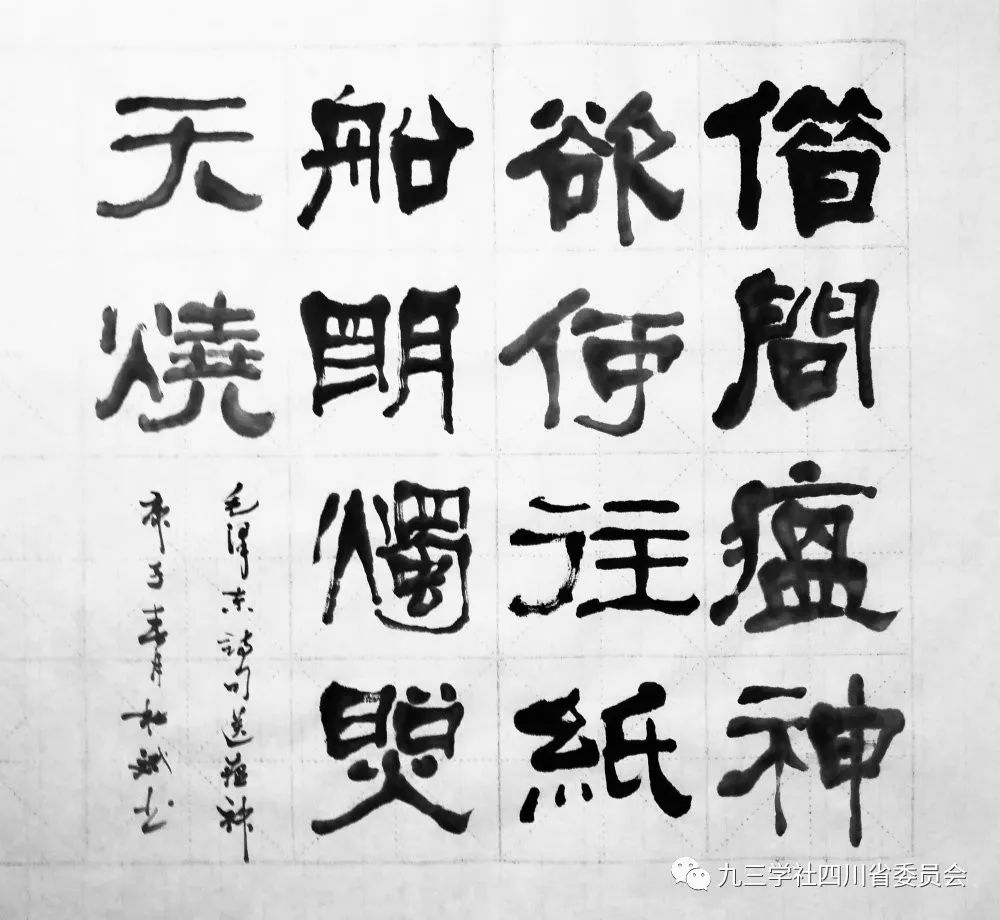 借問瘟神
欲何往紙
船明燭照
天燒
毛澤东詩句送瘟神
庚子春月书
九三学社四川省委员会